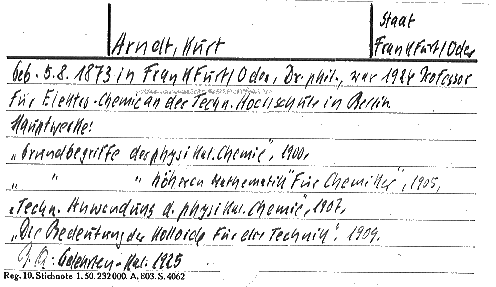 Staat
Arndt, Kurt
Frankfurt/Oder
geb. 5.8.1873 in Frankfurt/Oder, Dr. phil., war 1924 Professor
für Elektro-Chemie an der Techn. Hochschule in Berlin
Hauptwerke:
„Grundbegriffe der physikal. Chemie", 1900,
„ " " höheren Mathematik" für Chemiker", 1905,
„Techn. Anwendung d. physikal. Chemie", 1907,
„Die Bedeutung der Kolloide für die Technik". 1909.
Gelehrten-Kal. 1925
Reg. 10. Stichnote 1. 50. 232000. A. 803. S. 4062